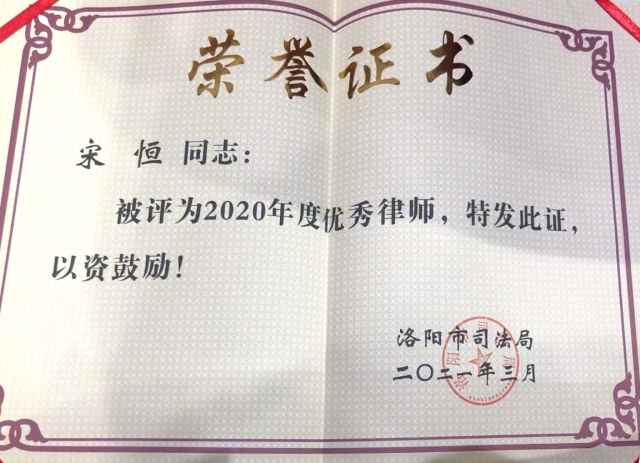 荣誉证书
宋 恒 同志：
被评为2020年度优秀律师，特发此证，
以资鼓励！
洛阳市司法局
二〇二一年三月